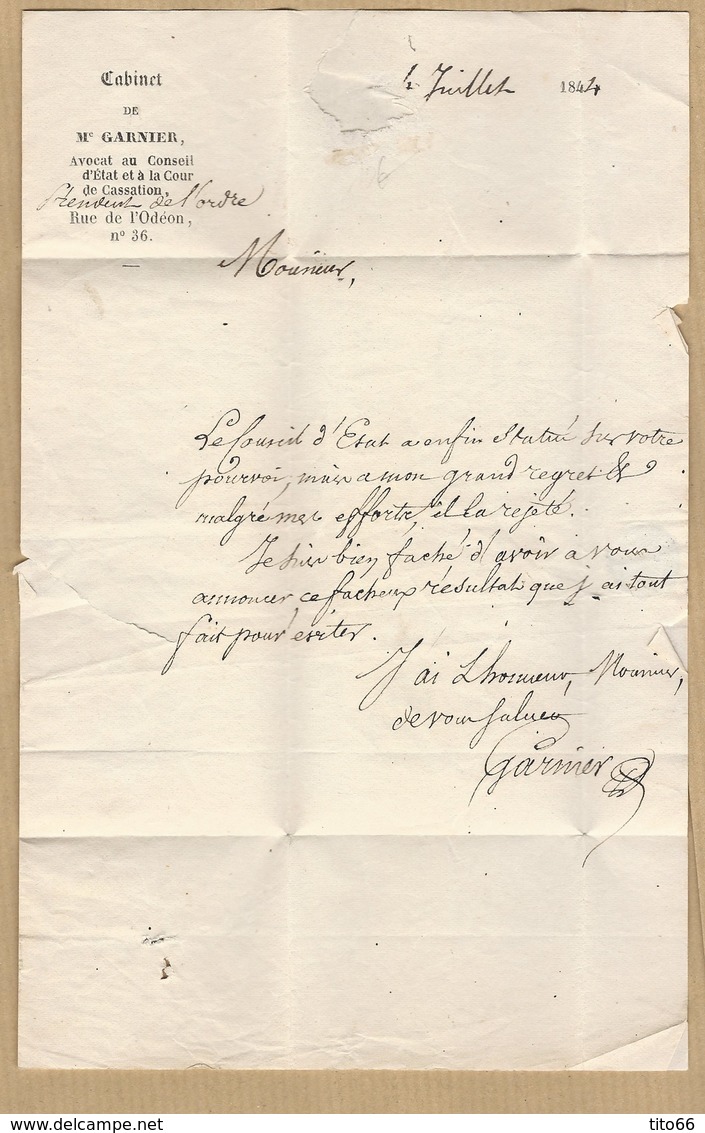 Cabinet
DE
Mᵉ GARNIER,
Avocat au Conseil
d'État et à la Cour
de Cassation,
Président de l'ordre
Rue de l'Odéon,
nº 36.
4 Juillet 1844
Monsieur,
Le Conseil d'Etat a enfin statué sur votre
pourvoi, mais a mon grand regret &
malgré mes efforts, il l'a rejeté.
Je suis bien faché d'avoir à vous
annoncer ce facheux résultat que j'ai tout
fait pour éviter.
J'ai L'honneur, Monsieur,
de vous saluer
Garnier
© www.delcampe.net
tito66